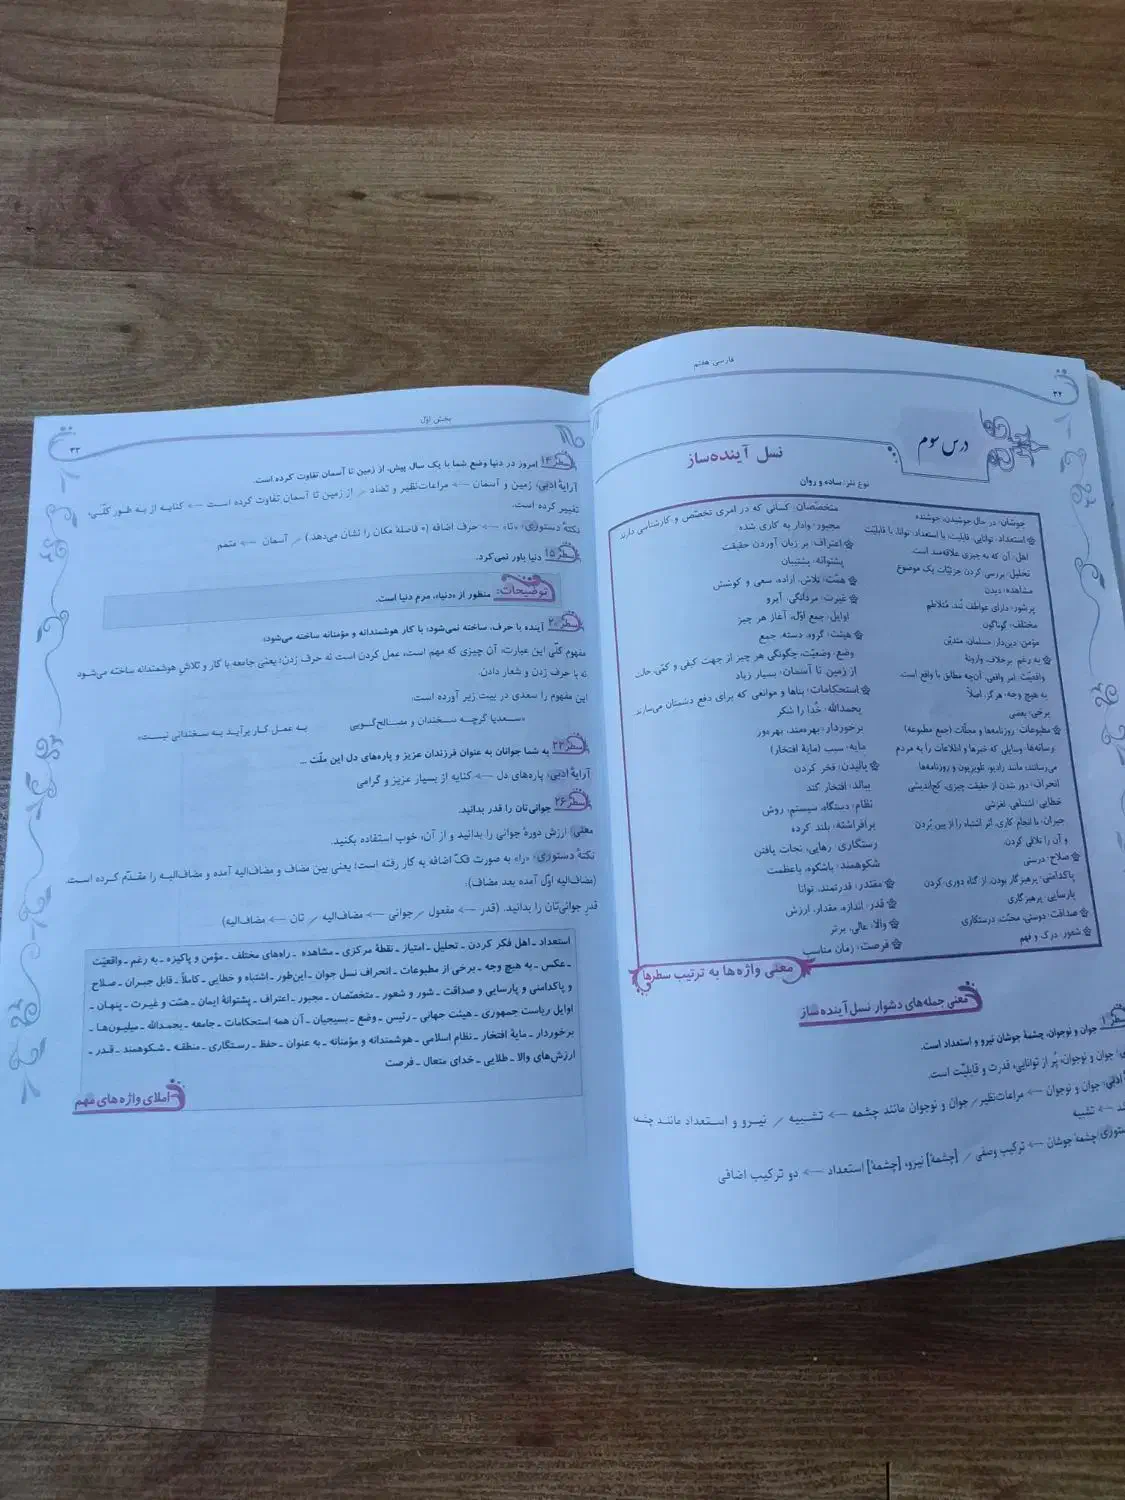 فارسی هفتم
۳۲
درس سوم
نسل آینده‌ساز
نوع نثر: ساده و روان
جوشان: در حال جوشیدن، جوشنده
استعداد: توانایی، قابلیت، با استعداد: توانا، با قابلیّت
اهل: آن که به چیزی علاقه‌مند است.
تحلیل: بررسی کردن جزئیّات یک موضوع
مشاهده: دیدن
پرشور: دارای عواطف تُند، مُتلاطم
مختلف: گوناگون
مؤمن: دین‌دار، مسلمان، متدیّن
به رغم: برخلاف، وارونهٔ
واقعیّت: امر واقعی، آن‌چه مطابق با واقع است.
به هیچ وجه: هرگز، اصلاً
برخی: بعضی
مطبوعات: روزنامه‌ها و مجلّات (جمع مطبوعه)
رسانه‌ها: وسایلی که خبرها و اطلاعات را به مردم
می‌رسانند؛ مانند رادیو، تلویزیون و روزنامه‌ها
انحراف: دور شدن از حقیقت چیزی، کج‌اندیشی
خطایی: اشتباهی، لغزشی
جبران: با انجام کاری، اثر اشتباه را از بین بُردن
و آن را تلافی کردن.
صلاح: درستی
پاکدامنی: پرهیزگار بودن، از گناه دوری کردن
پارسایی: پرهیزگاری
صداقت: دوستی، محبّت، درستکاری
شعور: درک و فهم
متخصّصان: کسانی که در امری تخصّص و کارشناسی دارند.
مجبور: وادار به کاری شده
اعتراف: بر زبان آوردن حقیقت
پشتوانه: پشتیبان
همّت: تلاش، اراده، سعی و کوشش
غیرت: مردانگی، آبرو
اوایل: جمع اوّل، آغاز هر چیز
هیئت: گروه، دسته، جمع
وضع: وضعیّت، چگونگی هر چیز از جهت کیفی و کمّی، حالت
از زمین تا آسمان: بسیار زیاد
استحکامات: بناها و موانعی که برای دفع دشمنان می‌سازند.
بحمدالله: خُدا را شکر
برخوردار: بهره‌مند، بهره‌ور
مایه: سبب (مایهٔ افتخار)
بالیدن: فخر کردن
ببالد: افتخار کند
نظام: دستگاه، سیستم، روش
برافراشته: بلند کرده
رستگاری: رهایی، نجات یافتن
شکوهمند: باشکوه، باعظمت
مقتدر: قدرتمند، توانا
قدر: اندازه، مقدار، ارزش
والا: عالی، برتر
فرصت: زمان مناسب
معنی واژه‌ها به ترتیب سطرها
معنی جمله‌های دشوار نسل آینده‌ساز
سطر ۱ جوان و نوجوان، چشمهٔ جوشان نیرو و استعداد است.
جوان و نوجوان، پُر از توانایی، قدرت و قابلیّت است.
ادبی: جوان و نوجوان ← مراعات‌نظیر / جوان و نوجوان مانند چشمه ← تشبیه / نیرو و استعداد مانند چشمه
← تشبیه
چشمهٔ جوشان ← ترکیب وصفی / [چشمهٔ] نیرو، [چشمهٔ] استعداد ← دو ترکیب اضافی
بخش اوّل
۳۳
سطر ۱۴ امروز در دنیا وضع شما با یک سال پیش، از زمین تا آسمان تفاوت کرده است.
آرایهٔ ادبی: زمین و آسمان ← مراعات‌نظیر و تضاد / از زمین تا آسمان تفاوت کرده است ← کنایه از به طور کلّی،
تغییر کرده است.
نکتهٔ دستوری: «تا» ← حرف اضافه (« فاصلهٔ مکان را نشان می‌دهد.) / آسمان ← متمم
سطر ۱۵ دنیا باور نمی‌کرد.
توضیحات: منظور از «دنیا»، مردم دنیا است.
سطر ۲۰ آینده با حرف، ساخته نمی‌شود؛ با کار هوشمندانه و مؤمنانه ساخته می‌شود:
مفهوم کلّی این عبارت: آن چیزی که مهم است، عمل کردن است نه حرف زدن؛ یعنی جامعه با کار و تلاشِ هوشمندانه ساخته می‌شود
نه با حرف زدن و شعار دادن.
این مفهوم را سعدی در بیت زیر آورده است:
«سعدیا گرچه سخندان و مصالح‌گویی به عمل کار برآید به سخندانی نیست»
سطر ۲۲ به شما جوانان به عنوان فرزندان عزیز و پاره‌های دل این ملّت ...
آرایهٔ ادبی: پاره‌های دل ← کنایه از بسیار عزیز و گرامی
سطر ۲۶ جوانی‌تان را قدر بدانید.
معنی: ارزش دورهٔ جوانی را بدانید و از آن، خوب استفاده بکنید.
نکتهٔ دستوری: «را» به صورت فکّ اضافه به کار رفته است؛ یعنی بین مضاف و مضاف‌الیه آمده و مضاف‌الیه را مقدّم کرده است.
(مضاف‌الیه اوّل آمده بعد مضاف):
قدر جوانی‌تان را بدانید. (قدر ← مفعول / جوانی ← مضاف‌الیه / تان ← مضاف‌الیه)
استعداد ـ اهل فکر کردن ـ تحلیل ـ امتیاز ـ نقطهٔ مرکزی ـ مشاهده ـ راه‌های مختلف ـ مؤمن و پاکیزه ـ به رغم ـ واقعیّت
ـ عکس ـ به هیچ وجه ـ برخی از مطبوعات ـ انحراف نسل جوان ـ این‌طور ـ اشتباه و خطایی ـ کاملاً ـ قابل جبران ـ صلاح
و پاکدامنی و پارسایی و صداقت ـ شور و شعور ـ متخصّصان ـ مجبور ـ اعتراف ـ پشتوانهٔ ایمان ـ همّت و غیرت ـ پنهان ـ
اوایل ریاست جمهوری ـ هیئت جهانی ـ رئیس ـ وضع ـ بسیجیان ـ آن همه استحکامات ـ جامعه ـ بحمدالله ـ میلیون‌ها ـ
برخوردار ـ مایهٔ افتخار ـ نظام اسلامی ـ هوشمندانه و مؤمنانه ـ به عنوان ـ حفظ ـ رستگاری ـ منطقه ـ شکوهمند ـ قدر ـ
ارزش‌های والا ـ طلایی ـ خدای متعال ـ فرصت
املای واژه‌های مهم